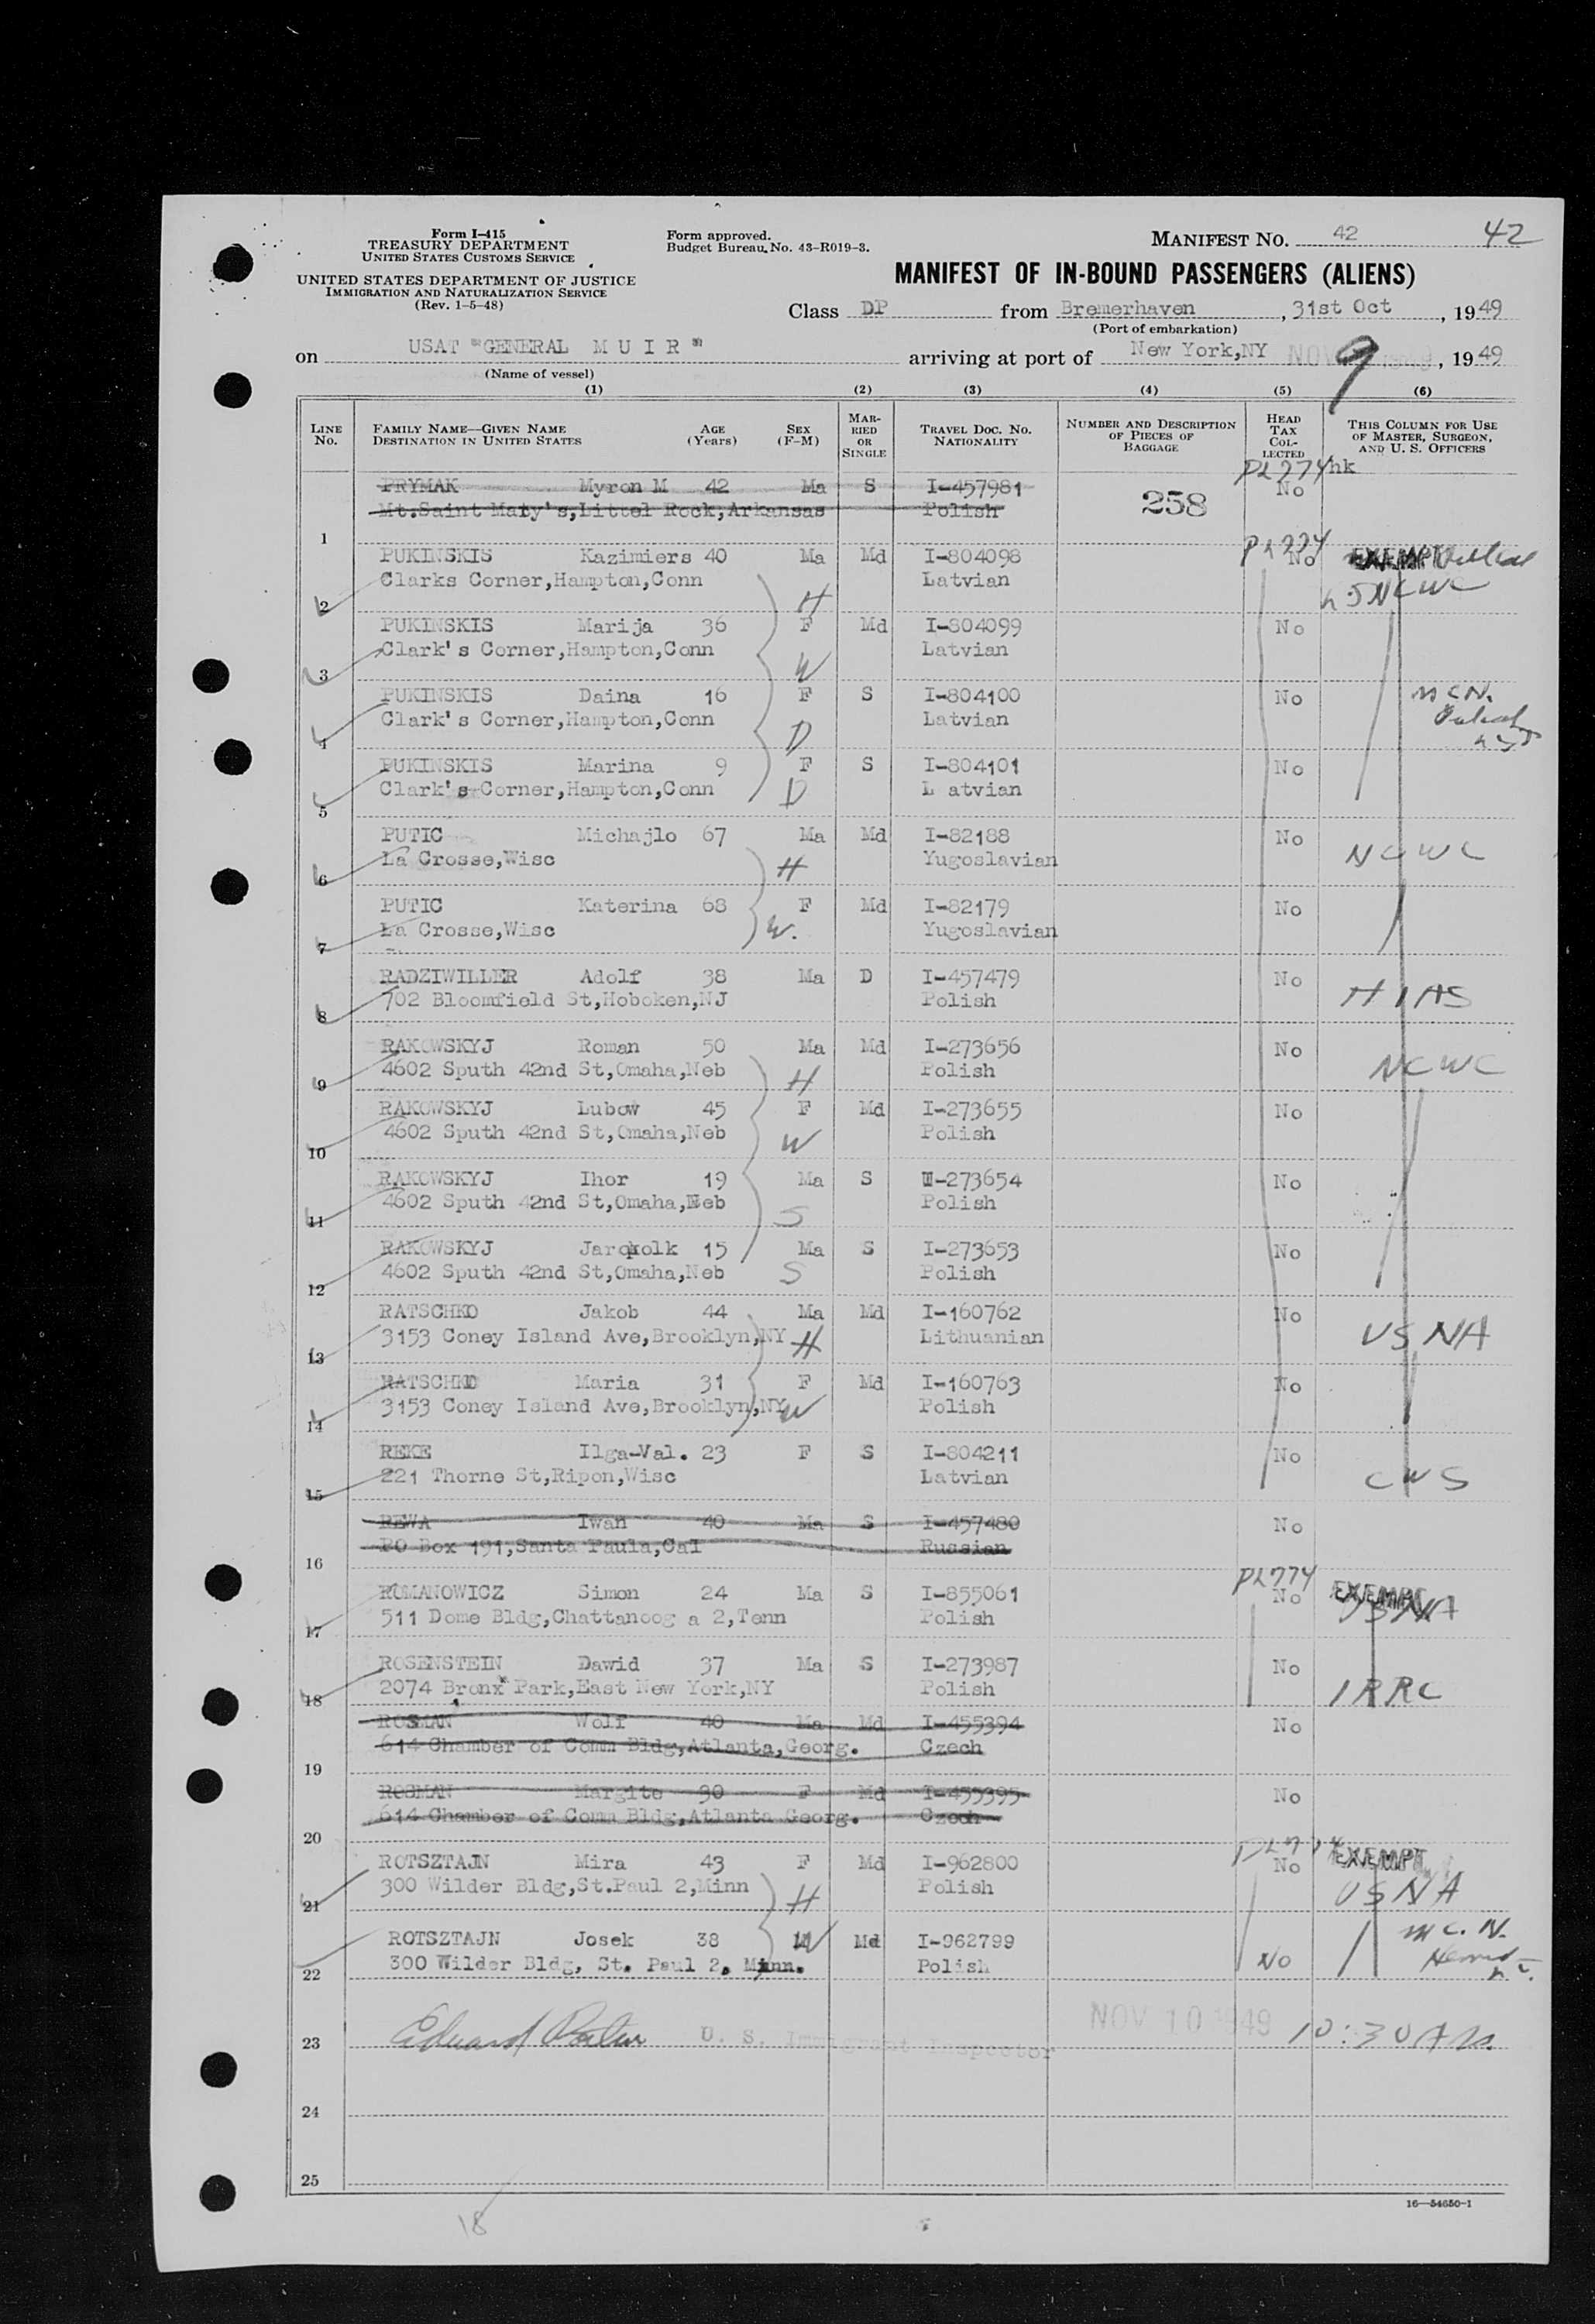 Form I-415
TREASURY DEPARTMENT
UNITED STATES CUSTOMS SERVICE
UNITED STATES DEPARTMENT OF JUSTICE
IMMIGRATION AND NATURALIZATION SERVICE
(Rev. 1-5-48)
Form approved.
Budget Bureau No. 43-R019-3.
MANIFEST NO. 42 42
MANIFEST OF IN-BOUND PASSENGERS (ALIENS)
Class DP from Bremerhaven, 31st Oct, 1949
(Port of embarkation)
on USAT "GENERAL M U I R" arriving at port of New York,NY NOV 9, 1949
(Name of vessel)
(1) (2) (3) (4) (5) (6)
LINE NO. FAMILY NAME—GIVEN NAME DESTINATION IN UNITED STATES AGE (Years) SEX (F-M) MARRIED OR SINGLE TRAVEL DOC. NO. NATIONALITY NUMBER AND DESCRIPTION OF PIECES OF BAGGAGE HEAD TAX COLLECTED THIS COLUMN FOR USE OF MASTER, SURGEON, AND U. S. OFFICERS
PL 774 hk
PRYMAK Myron M 42 Ma S I-457981 258 No
Mt.Saint Maty's,Littel Rock,Arkansas Polish
1
PL 774
PUKINSKIS Kazimiers 40 Ma Md I-804098 No EXEMPT
Clarks Corner,Hampton,Conn Latvian
2 H NCWC
PUKINSKIS Marija 36 F Md I-804099 No
Clark's Corner,Hampton,Conn Latvian
3 W
PUKINSKIS Daina 16 F S I-804100 No
Clark's Corner,Hampton,Conn Latvian
4 D
PUKINSKIS Marina 9 F S I-804101 No
Clark's Corner,Hampton,Conn L atvian
5 D
PUTIC Michajlo 67 Ma Md I-82188 No NCWC
La Crosse,Wisc Yugoslavian
6 H
PUTIC Katerina 68 F Md I-82179 No
La Crosse,Wisc Yugoslavian
7 W.
RADZIWILLER Adolf 38 Ma D I-457479 No
702 Bloomfield St,Hoboken,NJ Polish HIAS
8
RAKOWSKYJ Roman 50 Ma Md I-273656 No
4602 Sputh 42nd St,Omaha,Neb Polish NCWC
9 H
RAKOWSKYJ Lubow 45 F Md I-273655 No
4602 Sputh 42nd St,Omaha,Neb Polish
10 W
RAKOWSKYJ Ihor 19 Ma S I-273654 No
4602 Sputh 42nd St,Omaha,Neb Polish
11 S
RAKOWSKYJ 15 Ma S I-273653 No
4602 Sputh 42nd St,Omaha,Neb S Polish
12
RATSCHKO Jakob 44 Ma Md I-160762 No
3153 Coney Island Ave,Brooklyn,NY H Lithuanian USNA
13
RATSCHKO Maria 31 F Md I-160763 No
3153 Coney Island Ave,Brooklyn,NY W Polish
14
REKE Ilga-Val. 23 F S I-804211 No
221 Thorne St,Ripon,Wisc Latvian CWS
15
REWA Iwan 40 Ma S I-457480 No
PO Box 191,Santa Paula,Cal Russian
16
PL 774
ROMANOWICZ Simon 24 Ma S I-855061 No EXEMPT
511 Dome Bldg,Chattanoog a 2,Tenn Polish USNA
17
ROSENSTEIN Dawid 37 Ma S I-273987 No
2074 Bronx Park,East New York,NY Polish IRRC
18
ROSMAN Wolf 40 Ma Md I-455394 No
614 Chamber of Comm Bldg,Atlanta,Georg. Czech
19
ROSMAN Margite 30 F Md I-455395 No
614 Chamber of Comm Bldg,Atlanta Georg. Czech
20
PL 774
ROTSZTAJN Mira 43 F Md I-962800 No EXEMPT
300 Wilder Bldg,St.Paul 2,Minn H Polish USNA
21
ROTSZTAJN Josek 38 W Md I-962799
300 Wilder Bldg, St. Paul 2, Minn. Polish No
22
NOV 10 1949 10:30 AM.
23 Edward U. S. Immigrant Inspector
24
25
16—54650-1
18